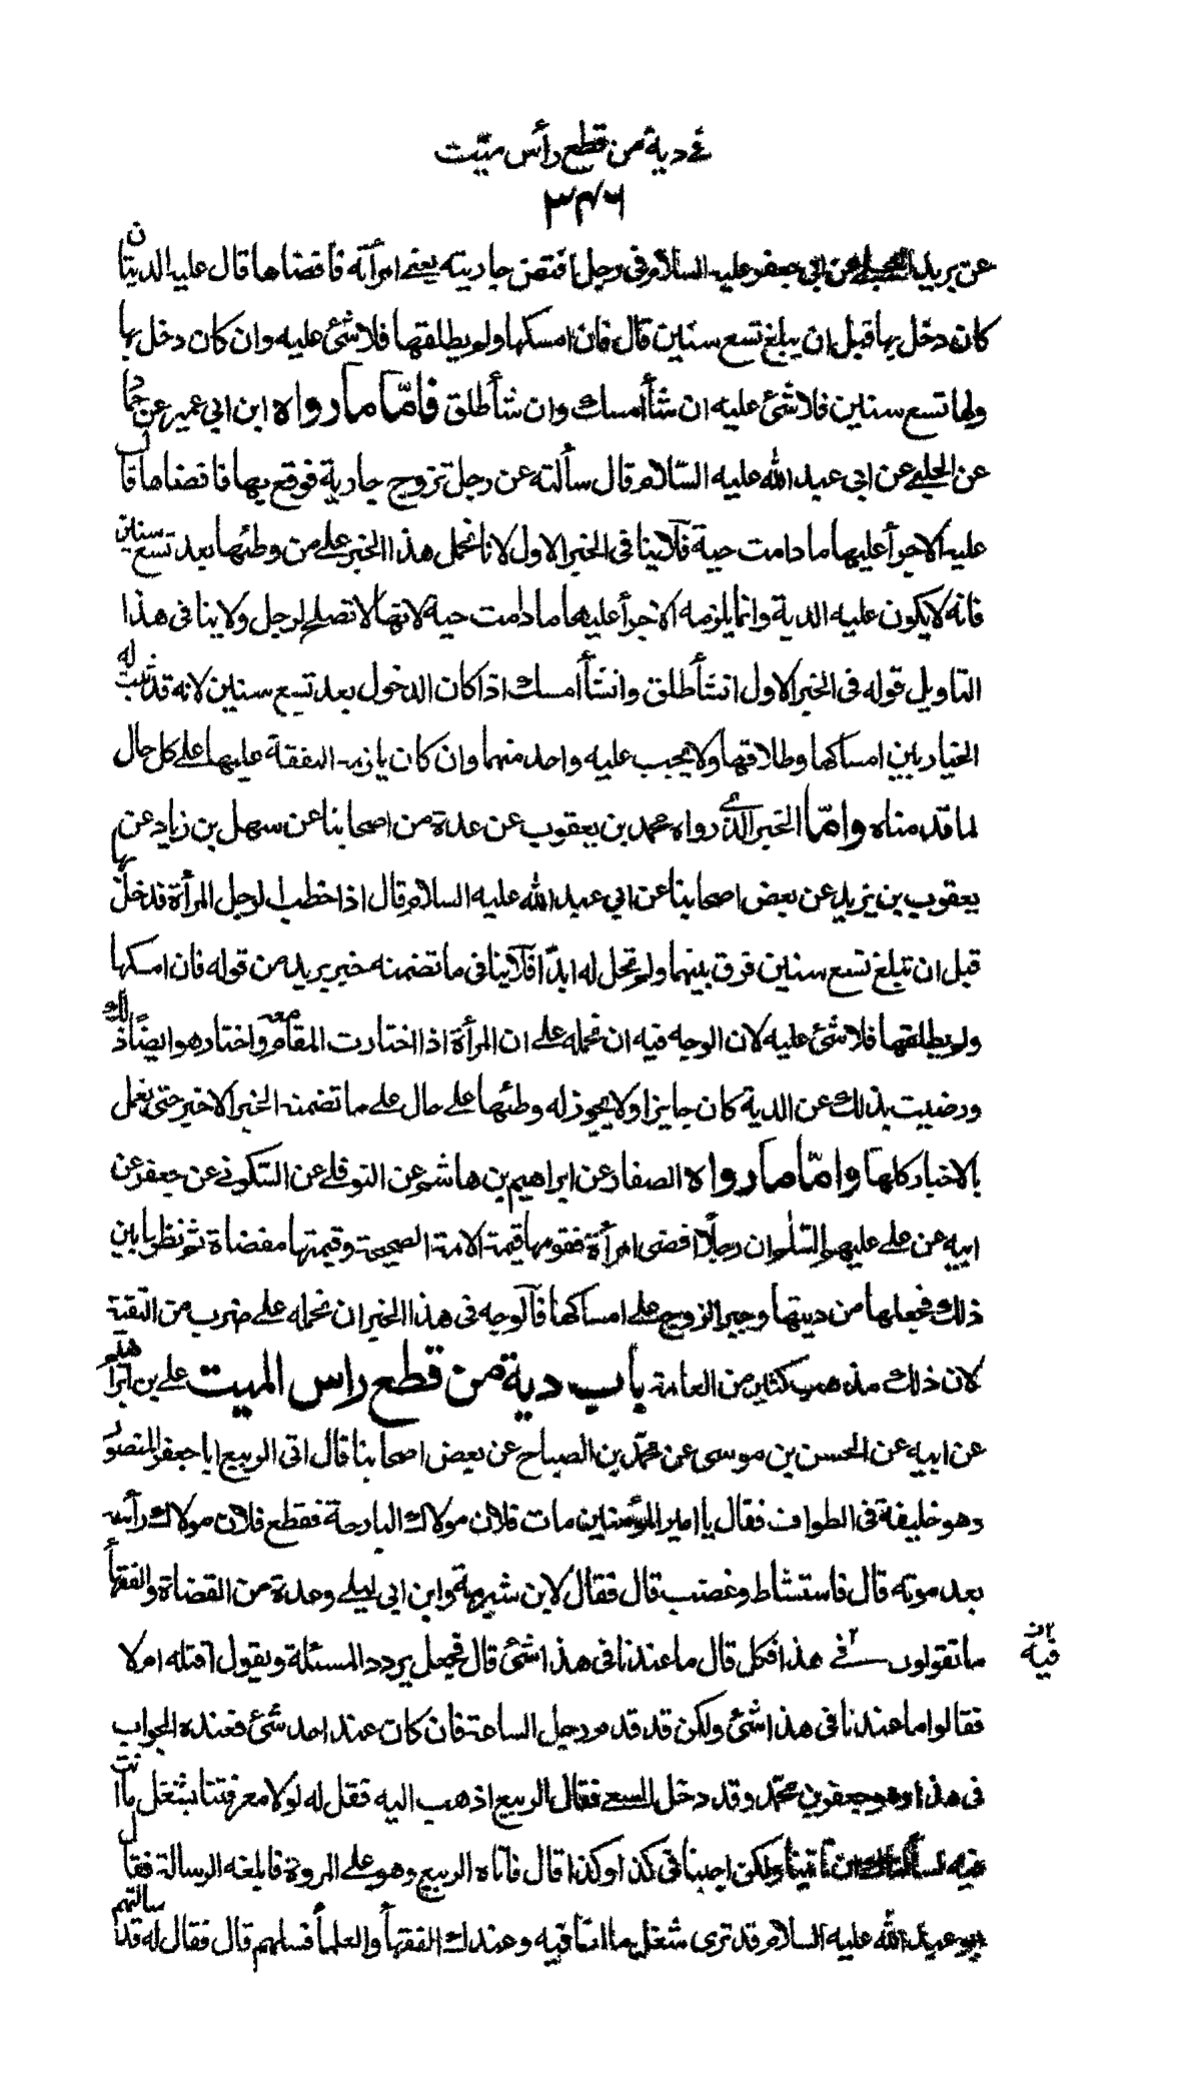 في دية من قطع رأس ميّت
٣٤٦
عن بريد العجلي عن ابي جعفر عليه السلام في رجل افتض جاريته يعني امرأته فافضاها قال عليه الدية ان
كان دخل بها قبل ان يبلغ تسع سنين قال فان امسكها ولم يطلقها فلا شئ عليه وان كان دخل بها
ولها تسع سنين فلا شئ عليه ان شأ امسك وان شأ طلق فامّا ما رواه ابن ابي عمير عن حماد
عن الحلبي عن ابي عبد الله عليه السّلام قال سألته عن رجل تزوج جارية فوقع بها فافضاها قال
عليه الاجرأ عليها ما دامت حية فلا ينافي الخبر الاول لانا نحمل هذا الخبر علي من وطئها بعد تسع سنين
فانه لا يكون عليه الدية وانما يلزمه الاجرأ عليها ما دامت حية لانها لا تصلح لرجل ولا ينافي هذا
التاويل قوله في الخبر الاول انشأ طلق وانشأ امسك اذا كان الدخول بعد تسع سنين لانه قد ثبت له
الخيار بين امساكها وطلاقها ولا يجب عليه واحد منهما وان كان يلزمه النفقة عليها علي كل حال
لما قدمناه وامّا الخبر الذي رواه محمد بن يعقوب عن عدة من اصحابنا عن سهل بن زياد عن
يعقوب بن يزيد عن بعض اصحابنا عن ابي عبد الله عليه السلام قال اذا خطب الرجل المرأة فدخل بها
قبل ان تبلغ تسع سنين فرق بينهما ولم تحل له ابدًا فلا ينافي ما تضمنه خبر بريد من قوله فان امسكها
ولم يطلقها فلا شئ عليه لان الوجه فيه ان نحمله علي ان المرأة اذا اختارت المقام معه واختار هو ايضًا ذلك
ورضيت بذلك عن الدية كان جايزا ولا يجوز له وطئها علي حال علي ما تضمنه الخبر الاخير حتى نعمل
بالاخبار كلها وامّا ما رواه الصفار عن ابراهيم بن هاشم عن النوفلي عن السكوني عن جعفر عن
ابيه عن علي عليهم السّلم ان رجلًا افضى امرأة فقومها قيمة الامة الصحيحة وقيمتها مفضاة ثم نظر ما بين
ذلك فجعلها من ديتها وجبر الزوج علي امساكها فالوجه في هذا الخبر ان نحمله علي ضرب من التقية
لان ذلك مذهب كثير من العامة باب دية من قطع راس الميت علي بن ابراهيم
عن ابيه عن الحسن بن موسى عن محمّد بن الصباح عن بعض اصحابنا قال اتى الربيع ابا جعفر المنصور
وهو خليفة في الطواف فقال يا امير المؤمنين مات فلان مولاك البارحة فقطع فلان مولاك رأسه
بعد موته قال فاستشاط وغضب قال فقال لابن شبرمة وابن ابي ليلي وعدة من القضاة والفقهأ
ما تقولون في هذا فكل قال ما عندنا في هذا شئ قال فجعل يردد المسئلة ويقول اقتله ام لا
فيه
فقالوا ما عندنا في هذا شئ ولكن قد قدم رجل الساعة فان كان عند احد شئ فعنده الجواب
في هذا وهو جعفر بن محمّد وقد دخل المسعي فقال الربيع اذهب اليه فقل له لولا معرفتنا بشغل ما انت
فيه لسألناك ان تأتينا ولكن اجبنا في كذا وكذا قال فاتاه الربيع وهو علي المروة فابلغه الرسالة فقال
ابو عبد الله عليه السلام قد ترى شغل ما انا فيه وعندك الفقهأ والعلمأ فسلهم قال فقال له قد سالتهم